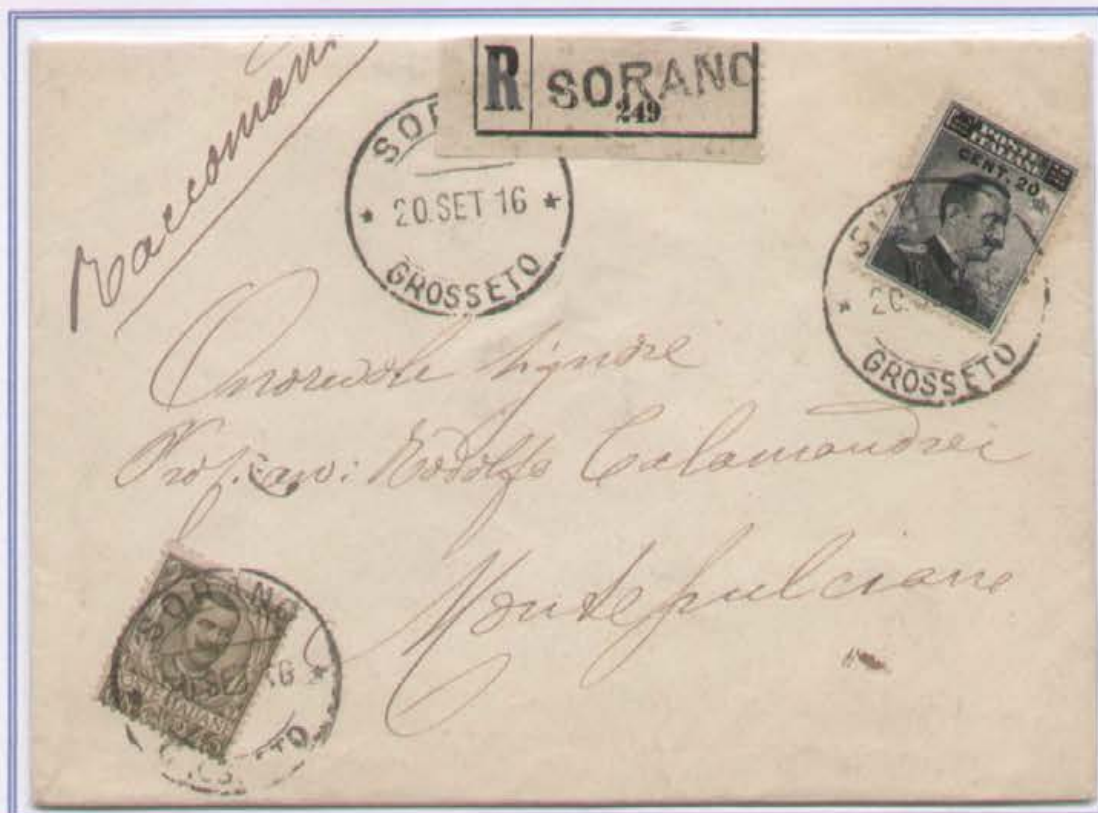 Raccoman
R SORANO
249
SOR
20.SET 16
GROSSETO
CENT. 20
20.S
GROSSETO
Onorevole Signore
Prof. avv: Rodolfo Calamandrei
Montepulciano
SORANO
SET 16
45